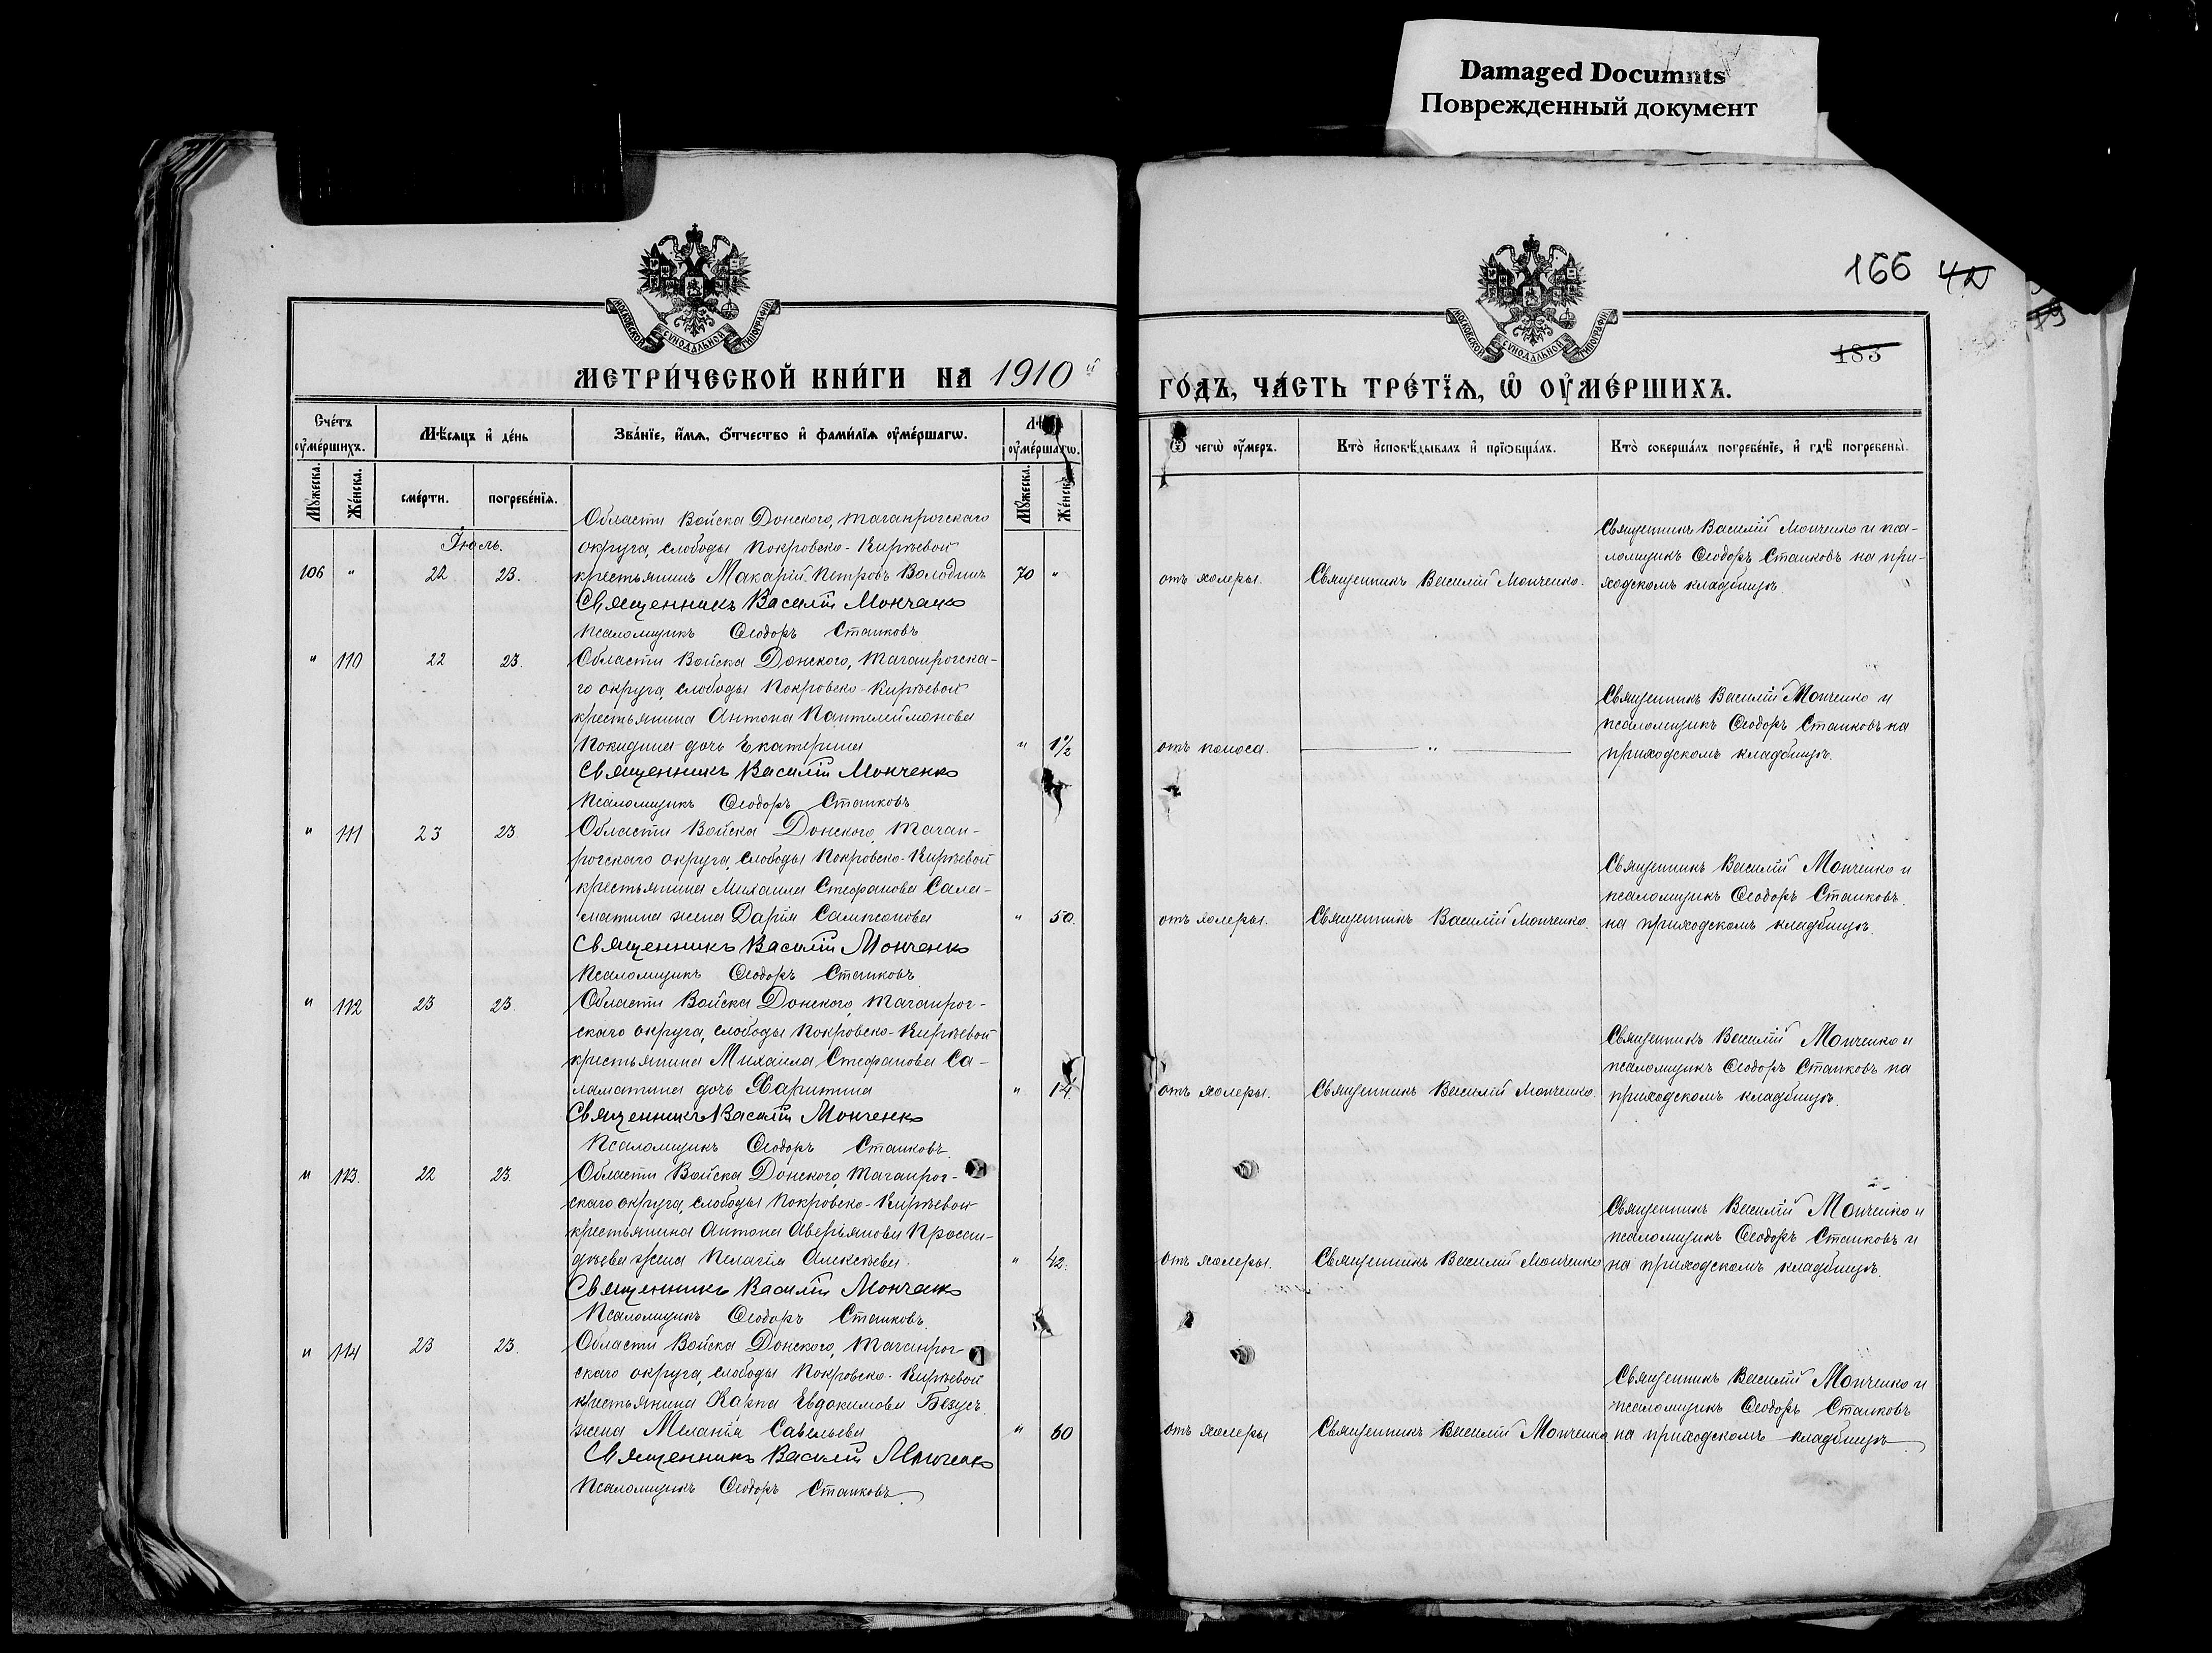 Damaged Documnts
Поврежденный документ
166 42
183
МОСКОВСКОЙ СѴНОДАЛЬНОЙ ТИПОГРАФІИ
МОСКОВСКОЙ СѴНОДАЛЬНОЙ ТИПОГРАФІИ
МЕТРИ́ЧЕСКОЙ КНИ́ГИ НА 1910 й
ГО́ДЪ, ЧА́СТЬ ТРЕ́ТЇѦ, Ѡ ОУ҆МЕ́РШИХЪ.
Сче́тъ оу҆ме́ршихъ.
Мѣсяцъ и҆ де́нь
Зва́нїе, и҆́мѧ, ѻ҆́тчество и҆ фами́лїѧ оу҆ме́ршагѡ.
Лѣта оу҆ме́ршагѡ.
Ѿ чегѡ̀ оу҆́меръ.
Кто̀ и҆сповѣ́дывалъ и҆ прїѡбща́лъ.
Кто̀ соверша́лъ погребе́нїе, и҆ гдѣ̀ погребены̀.
Мꙋжеска. Же́нска.
сме́рти. погребе́нїѧ.
Мꙋжеска. Же́нска.
Іюль.
Области Войска Донского, Таганрогскаго
округа, слободы Покровско-Кирѣевой
106 " 22 23. крестьянинъ Макарій Петровъ Володинъ 70 "
Священникъ Василій Мончако
Псаломщикъ Ѳеодоръ Станковъ
отъ холеры.
Священникъ Василій Монченко.
Священникъ Василій Монченко и пса-
ломщикъ Ѳеодоръ Станковъ на при-
ходскомъ кладбищѣ.
" 110 22 23. Области Войска Донского, Таганрогска-
го округа, слободы Покровско-Кирѣевой
крестьянина Антона Пантелеймонова
Покидина дочь Екатерина " 1½
Священникъ Василій Монченко
Псаломщикъ Ѳеодоръ Станковъ
отъ поноса.
"
Священникъ Василій Монченко и
псаломщикъ Ѳеодоръ Станковъ на
приходскомъ кладбищѣ.
" 111 23 23. Области Войска Донского, Таган-
рогскаго округа, слободы Покровско-Кирѣевой
крестьянина Михаила Стефанова Сала-
матина жена Дарія Сампсонова " 50.
Священникъ Василій Монченко
Псаломщикъ Ѳеодоръ Станковъ
отъ холеры.
Священникъ Василій Монченко.
Священникъ Василій Монченко и
псаломщикъ Ѳеодоръ Станковъ
на приходскомъ кладбищѣ.
" 112 23 23. Области Войска Донского, Таганрог-
скаго округа, слободы Покровско-Кирѣевой
крестьянина Михаила Стефанова Са-
ламатина дочь Харитина " 14.
Священникъ Василій Монченко
Псаломщикъ Ѳеодоръ Станковъ.
отъ холеры.
Священникъ Василій Монченко.
Священникъ Василій Монченко и
псаломщикъ Ѳеодоръ Станковъ на
приходскомъ кладбищѣ.
" 113. 22 23. Области Войска Донского, Таганрог-
скаго округа, слободы Покровско-Кирѣевой
крестьянина Антона Аверьянова
жена Пелагія Алексѣева. " 42.
Священникъ Василій Мончако
Псаломщикъ Ѳеодоръ Станковъ.
отъ холеры.
Священникъ Василій Монченко
Священникъ Василій Монченко и
псаломщикъ Ѳеодоръ Станковъ и
на приходскомъ кладбищѣ.
" 114 23 23. Области Войска Донского, Таганрог-
скаго округа, слободы Покровско-Кирѣевой
крестьянина Карпа Евдокимова Безусъ
жена Меланья Савельева " 60
Священникъ Василій Мончако
Псаломщикъ Ѳеодоръ Станковъ.
отъ холеры
Священникъ Василій Монченко
Священникъ Василій Монченко и
псаломщикъ Ѳеодоръ Станковъ
на приходскомъ кладбищѣ.